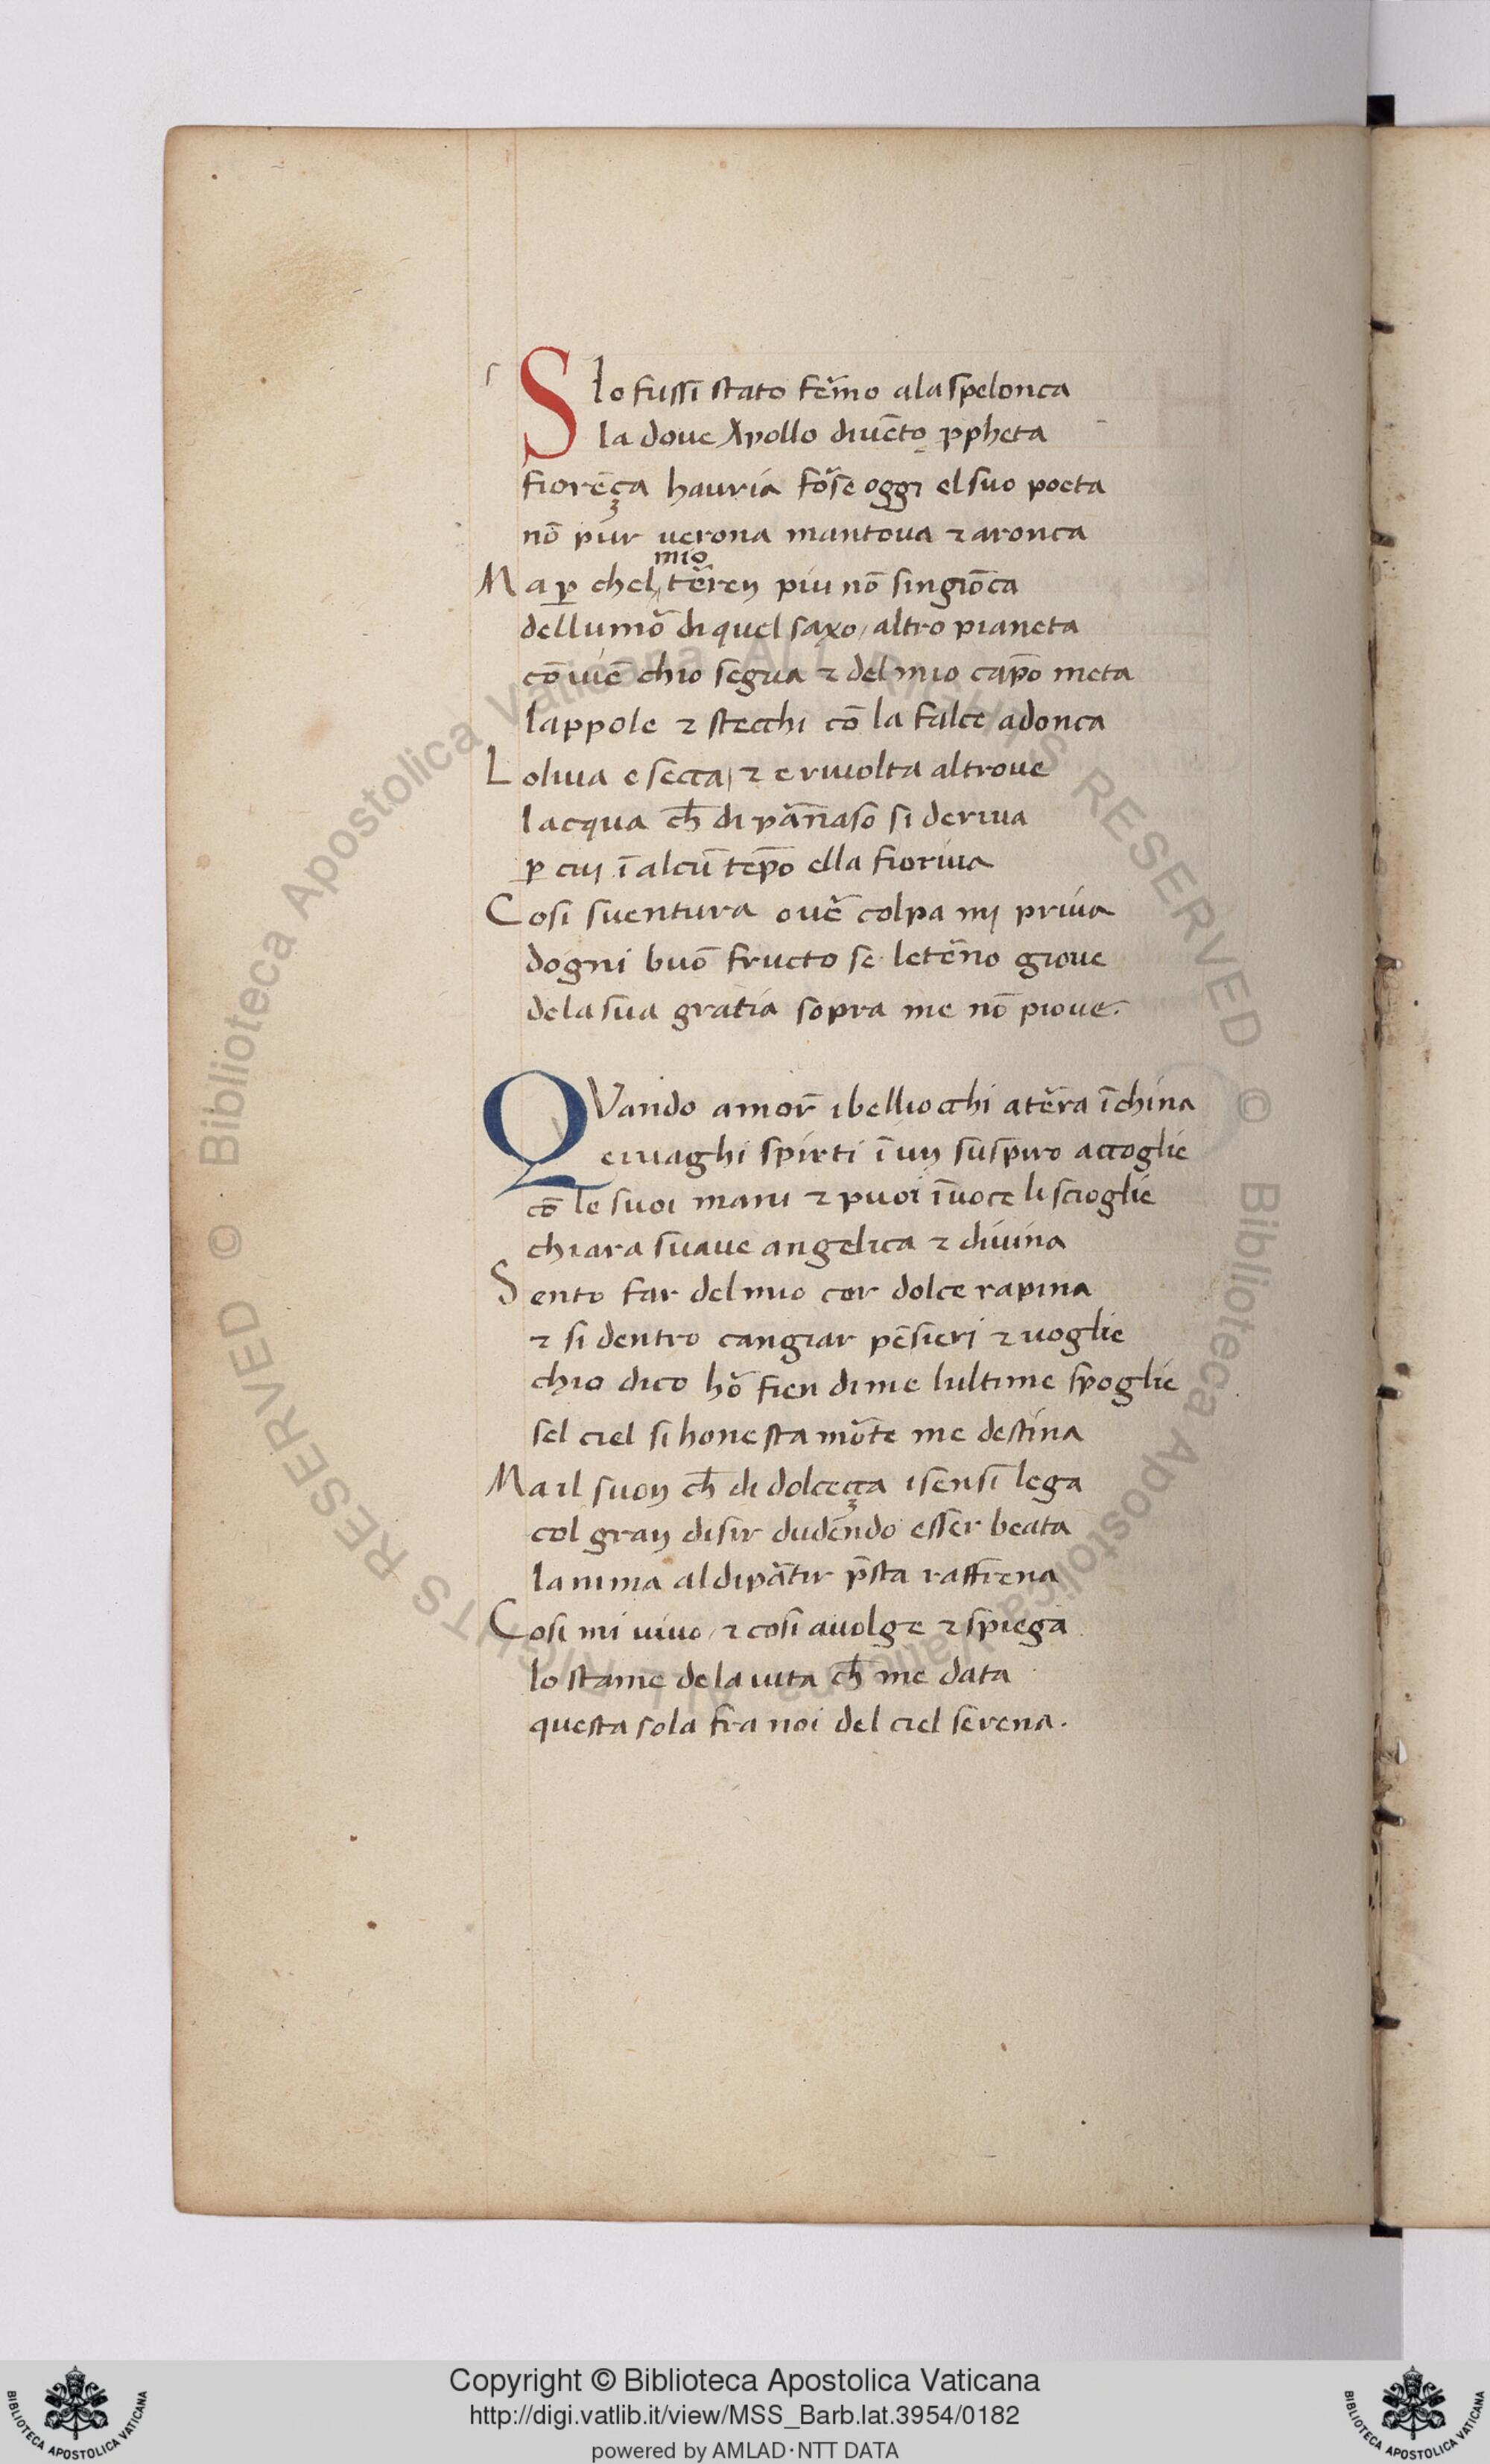 S Io fussi stato fẽmo ala spelonca
la doue Apollo diuẽto ppheta
fiorẽça hauria fõse oggi el suo poeta
nõ pur uerona mantoua ⁊ aronca
Ma ꝑ chel mio tẽren piu nõ singiõca
dellumõ di quel saxo, altro pianeta
cõuiẽ chio segua ⁊ del mio cap̃o meta
lappole ⁊ stecchi cõ la falce adonca
Loliua e secca, ⁊ e riuolta altroue
lacqua ch̃ di pãnaso si deriua
ꝑ cuj ĩ alcũ tep̃o ella fioriua
Cosi suentura ouẽ colpa mj priua
dogni buõ fructo se letẽno gioue
dela sua gratia sopra me nõ pioue.
QVando amor̃ ibelliocchi atẽra ĩchina
eiuaghi spirti ĩ un suspiro accoglie
cõ le suoi mani ⁊ puoi ĩuoce li scioglie
chiara suaue angelica ⁊ diuina
Sento far del mio cor dolce rapina
⁊ si dentro cangiar pẽsieri ⁊ uoglie
chio dico hõ fien di me lultime spoglie
sel ciel si honesta mõte me destina
Ma il suon ch̃ di dolcecça i sensi lega
col gran disir dudẽndo esser beata
lanima al dipãtir p̃sta raffrena
Cosi mi uiuo, ⁊ cosi auolge ⁊ spiega
lo stame dela uita ch̃ me data
questa sola fra noi del ciel serena.
Biblioteca Apostolica Vaticana ALL RIGHTS RESERVED © Biblioteca Apostolica Vaticana ALL RIGHTS RESERVED ©
Copyright © Biblioteca Apostolica Vaticana
http://digi.vatlib.it/view/MSS_Barb.lat.3954/0182
powered by AMLAD·NTT DATA
BIBLIOTECA APOSTOLICA VATICANA
BIBLIOTECA APOSTOLICA VATICANA